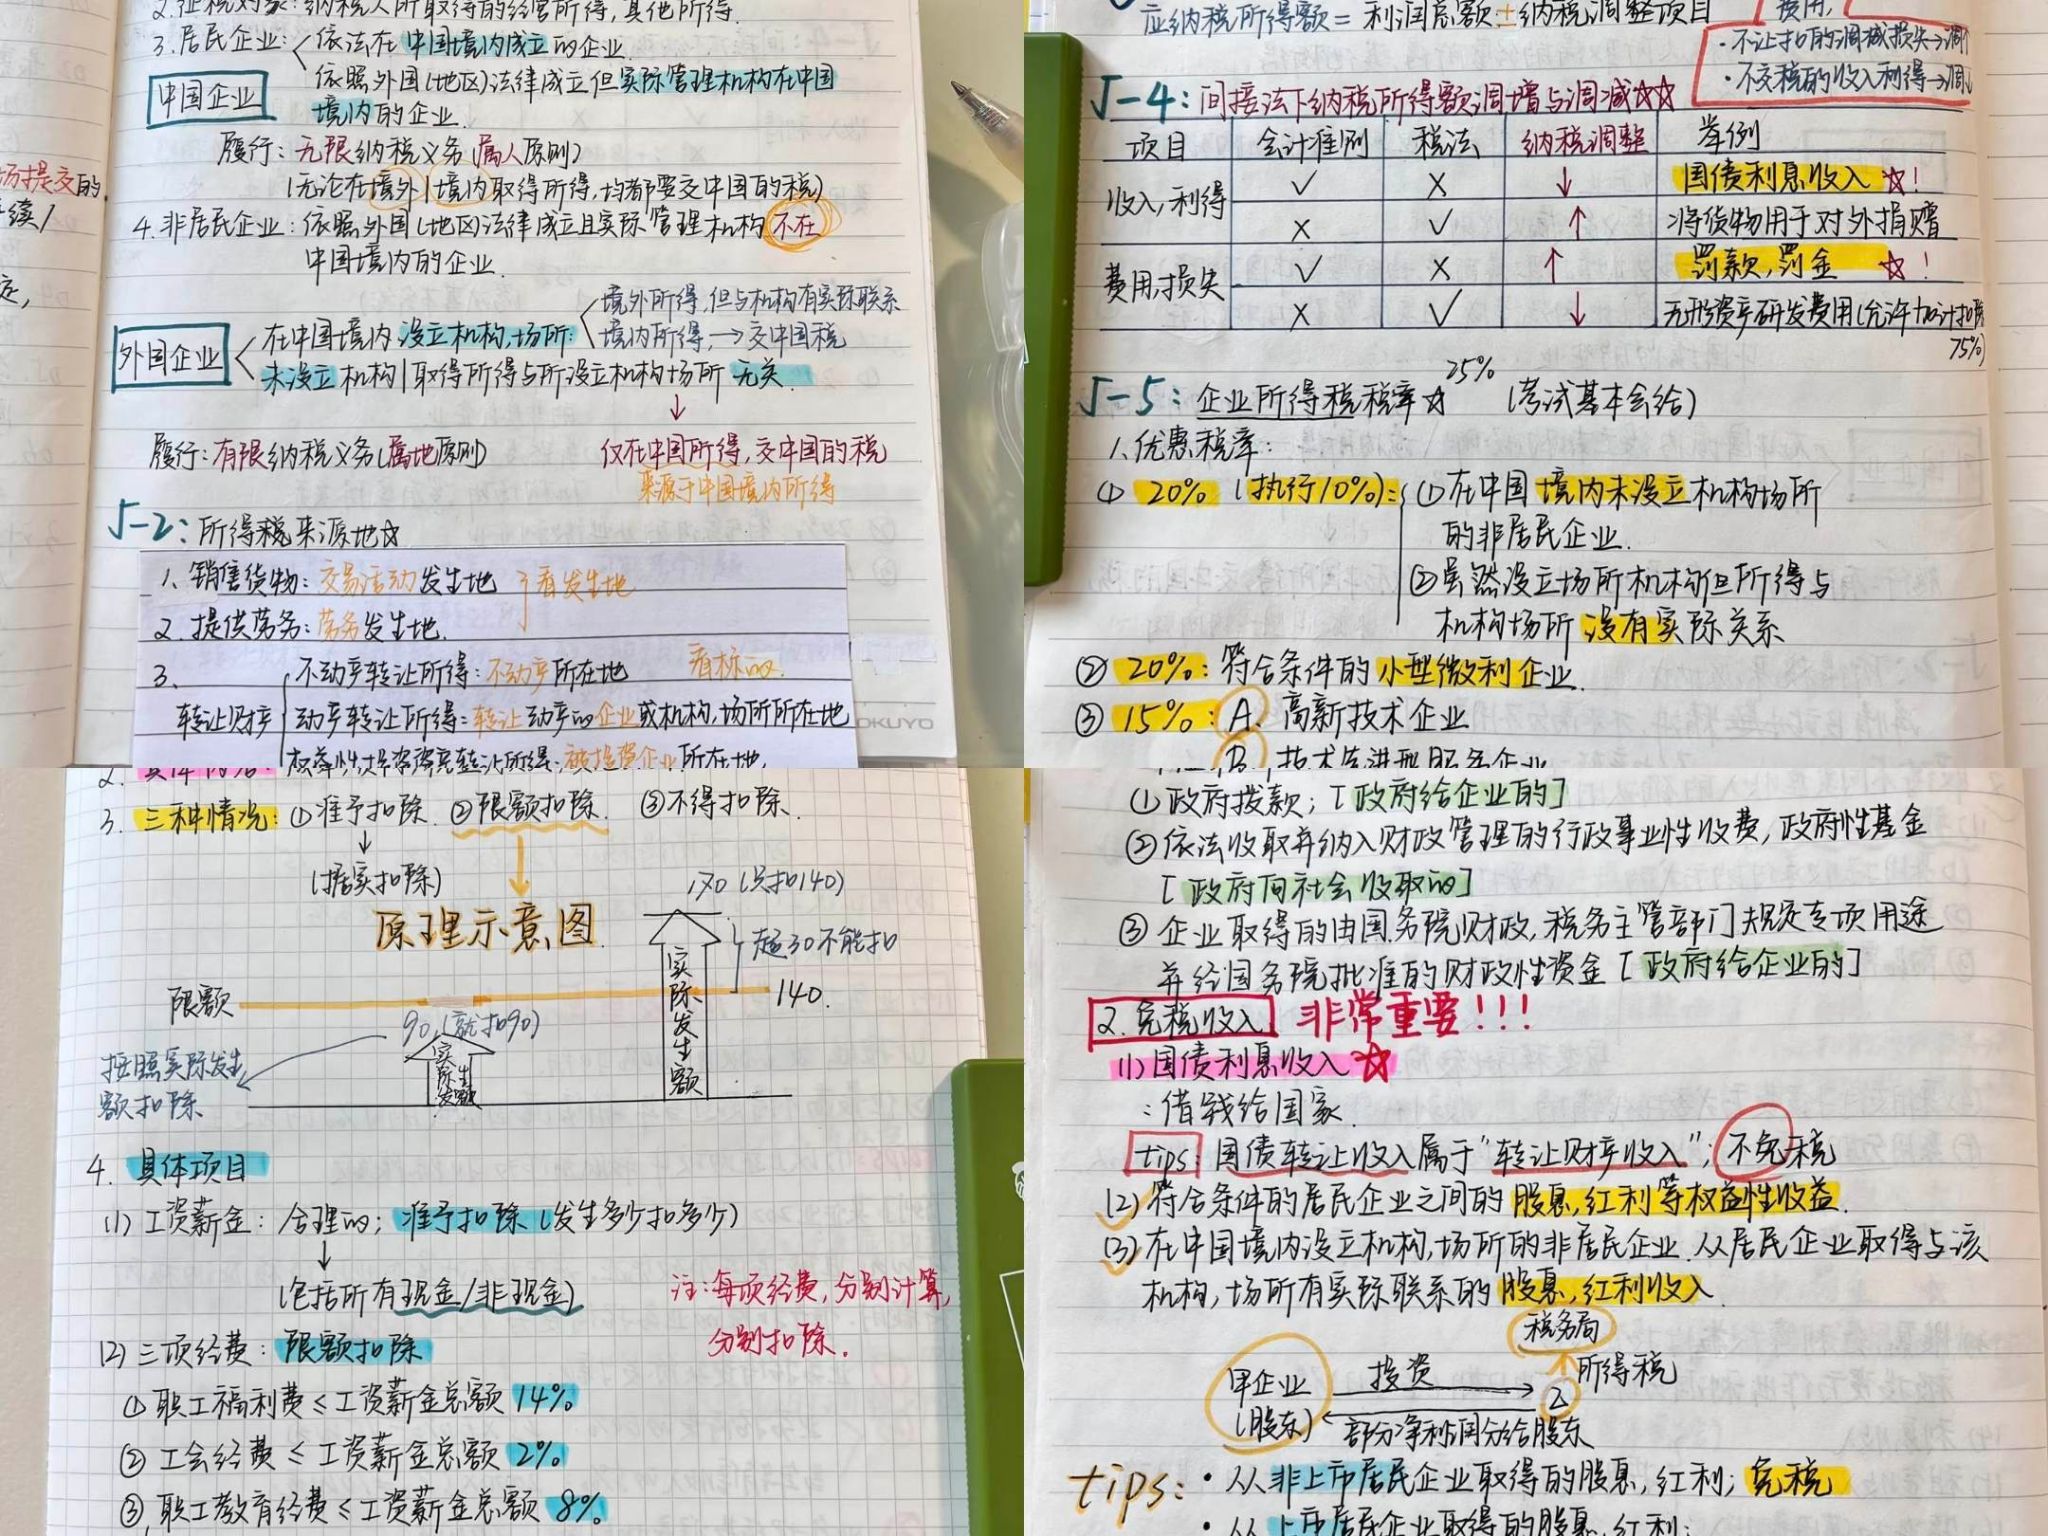 2.征税对象：纳税人所取得的经营所得，其他所得.
3.居民企业：依法在中国境内成立的企业.
依照外国（地区）法律成立但实际管理机构在中国
境内的企业.
中国企业
履行：无限纳税义务（属人原则）
（无论在境外/境内取得所得，均都要交中国的税）
4.非居民企业：依照外国（地区）法律成立且实际管理机构不在
中国境内的企业.
外国企业
在中国境内设立机构，场所：
境外所得，但与机构有实际联系
境内所得，→交中国税
未设立机构/取得所得与所设立机构场所无关.
↓
履行：有限纳税义务（属地原则）
仅在中国所得，交中国的税
来源于中国境内所得
J-2：所得税来源地☆
1、销售货物：交易活动发生地
看发生地
2.提供劳务：劳务发生地.
3、
转让财产
不动产转让所得：不动产所在地
看标的.
动产转让所得：转让动产的企业或机构，场所所在地
权益性投资资产转让所得：被投资企业所在地，
KOKUYO
场提交的
续/
定，
应纳税所得额=利润总额±纳税调整项目
费用，
·不让扣的调减损失→调个
·不交税的收入利得→调
J-4：间接法下纳税所得额调增与调减☆☆
项目 会计准则 税法 纳税调整 举例
收入，利得 ✓ ✗ ↓ 国债利息收入☆！
✗ ✓ ↑ 将货物用于对外捐赠
费用，损失 ✓ ✗ ↑ 罚款，罚金 ☆！
✗ ✓ ↓ 无形资产研发费用（允许加计扣除
75%）
J-5：企业所得税税率☆ 25% （考试基本会给）
1、优惠税率：
① 20%（执行10%）：①在中国境内未设立机构场所
的非居民企业.
②虽然设立场所机构但所得与
机构场所没有实际关系
② 20%：符合条件的小型微利企业.
③ 15%：A. 高新技术企业
B. 技术先进型服务企业
2. 具体内容：
3. 三种情况：①准予扣除.②限额扣除.③不得扣除.
↓
（据实扣除）
原理示意图.
170（只扣140）
超30不能扣
限额
140.
90.（就扣90）
按照实际发生
额扣除.
实际发生额
实际发生额
4. 具体项目
（1）工资薪金：合理的；准予扣除（发生多少扣多少）
↓
（包括所有现金/非现金）
注：每项经费，分别计算，
分别扣除.
（2）三项经费：限额扣除
①职工福利费≤工资薪金总额14%
②工会经费≤工资薪金总额2%
③，职工教育经费≤工资薪金总额8%
①政府拨款；[政府给企业的]
②依法收取并纳入财政管理的行政事业性收费，政府性基金
[政府向社会收取的]
③企业取得的由国务院财政，税务主管部门规定专项用途
并经国务院批准的财政性资金[政府给企业的]
2.免税收入 非常重要！！！
（1）国债利息收入☆
：借钱给国家.
tips：国债转让收入属于“转让财产收入”；不免税
（2）符合条件的居民企业之间的股息，红利等权益性收益.
（3）在中国境内设立机构，场所的非居民企业.从居民企业取得与该
机构，场所有实际联系的股息，红利收入
税务局
所得税
甲企业
（股东）
投资
乙
部分净利润分给股东
tips：·从非上市居民企业取得的股息，红利；免税
·从上市居民企业取得的股息，红利；